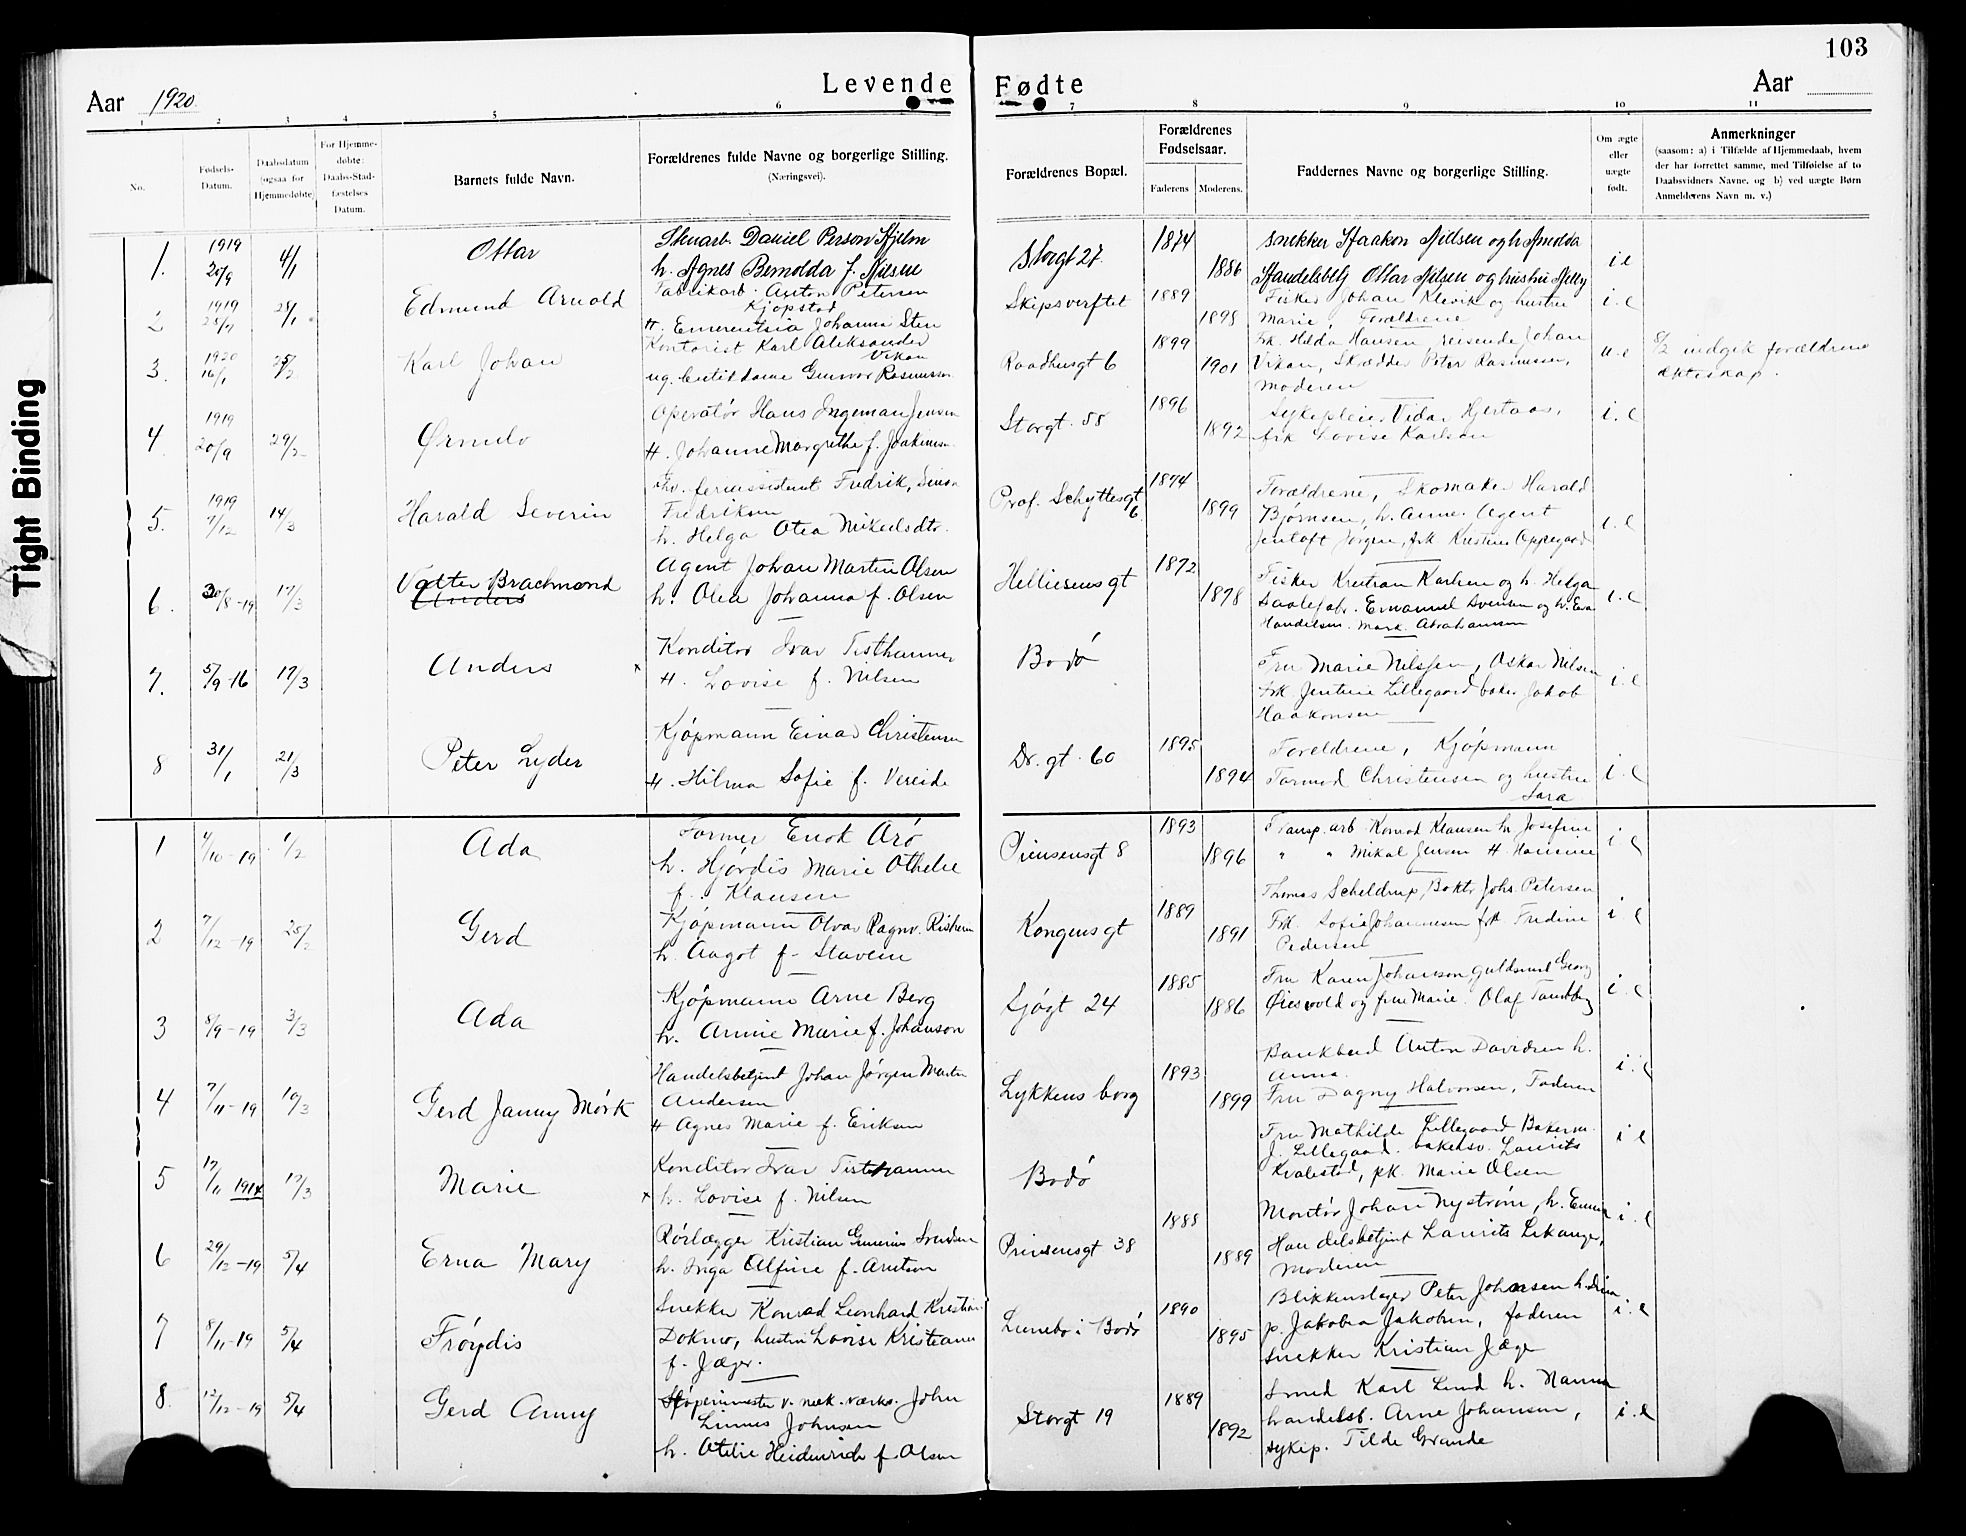 103
Levende Fødte
Aar 1920.
Aar
1 2 3 4 5 6 7 8 9 10 11
No.
Fødsels-
Datum.
Daabsdatum
(ogsaa for
Hjemmedøbte)
For Hjemme-
døbte:
Daabs-Stad-
fæstelses
Datum.
Barnets fulde Navn.
Forældrenes fulde Navne og borgerlige Stilling.
(Næringsvei).
Forældrenes Bopæl.
Forældrenes
Fødselsaar.
Faderens
Moderens.
Faddernes Navne og borgerlige Stilling.
Om ægte
eller
uægte
født.
Anmerkninger
(saasom: a) i Tilfælde af Hjemmedaab, hvem
der har forrettet samme, med Tilføielse af to
Daabsvidners Navne, og b) ved uægte Børn
Anmelderens Navn m. v.)
1. 1919 20/9 4/1 Ottar
Stenarb. Daniel Person Hjelm
h. Agnes Bernolda f. Nilsen
Storgt 27. 1874 1886
Snekker Haakon Nilsen og h.
Handelsbetj Ottar Nilsen og hustru Nelly
i e
2 1919 28/1 Edmund Arnold
Fabrikarb. Anton Petersen
Kjopstad
H. Emerentsia Johanna Sten
Skipsverftet 1889 1898
Fisker Johan Klevik og hustru
Marie, Forældrene
i. e
3. 1920 16/1 25/2 Karl Johan
Kontorist Karl Aleksander
Vikan
ug. Gunvor Rasmussen
Raadhusgt 6 1899 1901
frk. Hilda Hansen, reisende Johan
Vikan, Skrædder Peter Rasmussen,
Moderen
u. e
8/2 indgik forældrene
ekteskap.
4. 1919 20/9 29/2
Operatør Hans Ingeman Jensen
H. Johanne Margrethe f. Joakimsen
Storgt. 58 1896 1892
Sykepleier Vidar Hjertaas,
frk Lovise Karlsen
i. e
5. 1919 7/12 14/3 Harald Severin
Fredrik, Simon
Fredriksen
h. Helga Otea Mikkelsdtr.
Prof. Schyttesgt
6. 1874 1899
Forældrene, Skomaker Harald
Bjørnsen, h. Anne. Agent
Jørgine, frk Kristine Oppegaard
i. e
6. 30/8-19 17/3 Valter Brachmond
Anders
Agent Johan Martin Olsen
h. Olea Johanna f. Olsen
Helliesensgt 1872 1878
Fisker Kristian Karlsen og h. Helga
Emanuel Svensen og h. Eva
Handelsm. Mark. Abrahamsen
i. e
7. 5/9-16 17/3 Anders
x Konditor Ivar Tisthammer
H. Lovise f. Nilsen
Bodø
Fru Marie Nilssen, Oskar Nilsen
frk. Jentine Lillegaard baker Jakob
Haakonsen
i. e
8 31/1 21/3 Peter Lyder
Kjøpmann Einar Christensen
H. Hilma Sofie f. Vereide
Dr. gt. 60 1895 1894
Foreldrene, Kjøpmann
Tormod Christensen og hustru
Sara
i. e
1 4/10-19 1/2 Ada
Former Enok Arø
h. Hjørdis Marie Othelie
f. Klausen
Prinsensgt 8 1893 1896
Transp. arb Konrad Klausen h. Josefine
" " Mikal Jensen H. Hansine
i e
2 7/12-19 25/2 Gerd
Kjøpmann Olvar Ragnv.
h. Aagot f. Stavem
Kongensgt 1889 1891
Thomas Scheldrup, Boktr Johs. Petersen
Frk. Sofie Johannesen frk Fredine
Pedersen
i e
3 8/9-19 3/3 Ada
Kjøpmann Arne Berg
h. Annie Marie f. Johanson
Sjøgt 24 1885 1886
Fru Karen Johanson, guldsmed Georg
Øiesvold og frue Marie. Olaf Tandberg
i. e
4 7/11-19 10/3 Gerd Janny Mørk
Handelsbetjent Johan Jørgen Martin
Andersen
H Agnes Marie f. Eriksen
Lykkensborg 1893 1899
Bankbud Anton Davidsen h.
Anna.
Fru Dagny Halvorsen, Faderen
i. e
5 17/11 1914 17/3 Marie
x Konditor Ivar Tisthammer
h. Lovise f. Nilsen
Bodø
Fru Mathilde Lillegaard Bakerm.
J. Lillegaard. bakersv. Laurits
Kvalestad, pk. Marie Olsen
i e
6 29/12-19 5/4 Erna Mary
Rørlægger Kristian Svendsen
h. Inga Alfine f. Arntsen
Prinsensgt 38 1885 1889
Montør Johan Nystrøm, h. Emma
Handelsbetjent Laurits Lekanger,
Moderen
i. e
7 8/11-19 5/4 Frøydis
Snekker Konrad Leonhard Kristian
Dokmo, hustru Lovise Kristiane
f. Jæger.
Lunebo i Bodø 1890 1895
Blikkenslager Peter Johansen h.
p. Jakobea Jakobsen, faderen
Snekker Kristian Jæger
i. e
8. 12/12-19 5/4 Gerd Anny
Støperimester v. mek. værks. John
Linnes Johnsen
h. Otelie Heidenrich f. Olsen
Storgt 19 1889 1892
Smed Karl Lund h. Hanna
handelsb. Arne Johansen,
sykep. Tilde Grande
i. e
Tight Binding